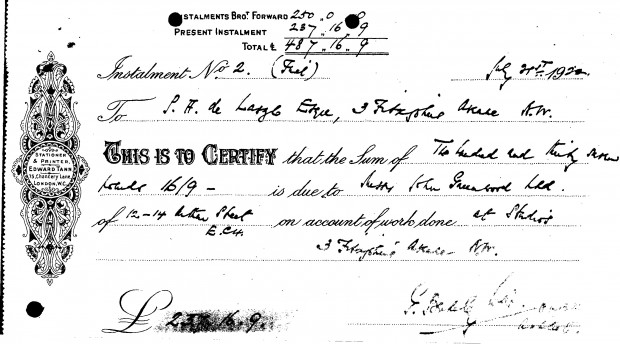 INSTALMENTS BROT. FORWARD 250 . 0 . 0
PRESENT INSTALMENT 237 . 16 . 9
TOTAL £ 487 . 16 . 9
Instalment No 2. July 21st 1922
To P. A. de Laszlo Esqre, 3 Fitzjohn's Avenue N.W.
THIS IS TO CERTIFY that the Sum of Two hundred and thirty seven
pounds 16/9 — is due to Messrs John Greenwood Ltd.
of 12-14 Arthur Street on account of work done at Studio
E.C.4.
3 Fitzjohn's Avenue N.W.
£ 237 16 9
STATIONER
& PRINTER,
EDWARD TARR
15, Chancery Lane,
LONDON, W.C.